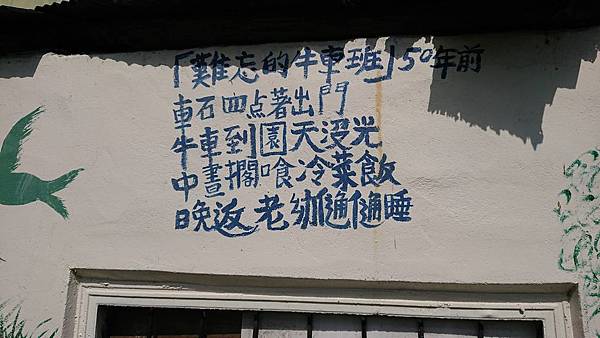 「難忘的牛車班」50年前
車石四点著出門
牛車到園天没光
中晝擱喰冷菜飯
晚返老幼通通睡